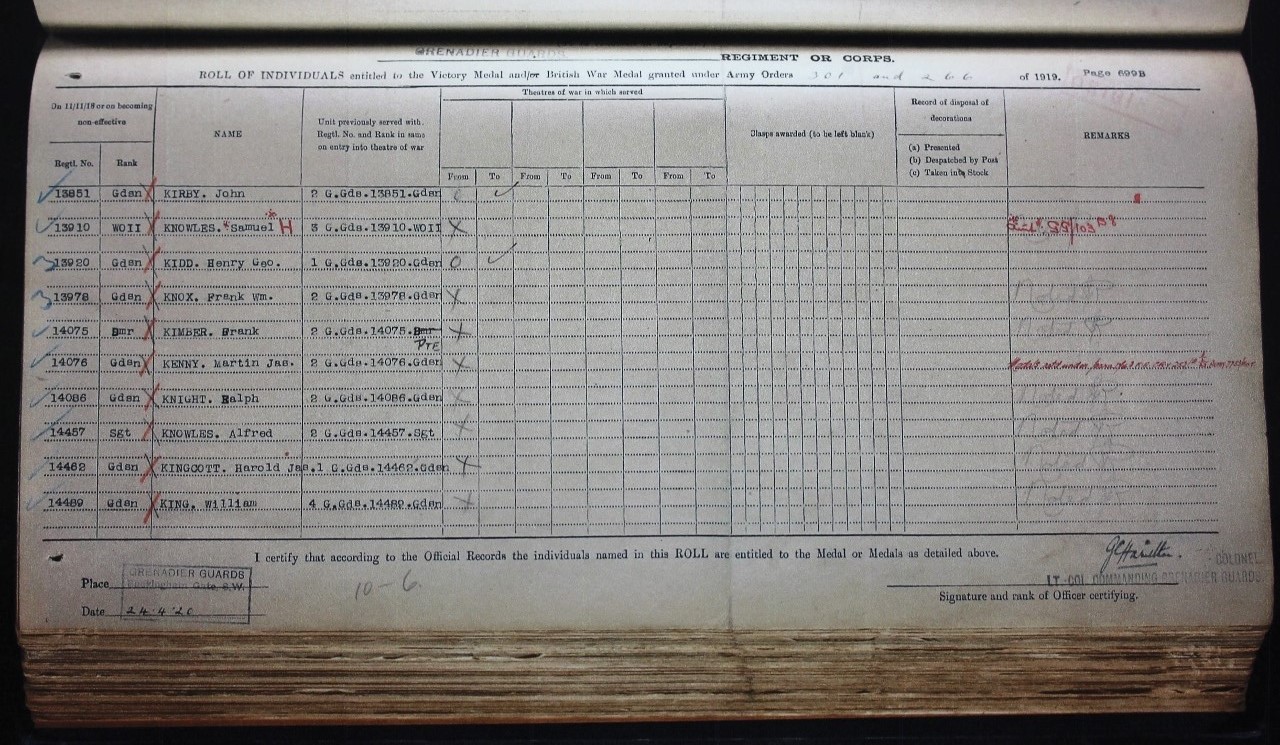 GRENADIER GUARDS REGIMENT OR CORPS.
ROLL OF INDIVIDUALS entitled to the Victory Medal and/or British War Medal granted under Army Orders 301 and 266 of 1919. Page 699B
On 11/11/18 or on becoming non-effective
Regtl. No. Rank
NAME
Unit previously served with. Regtl. No. and Rank in same on entry into theatre of war
Theatres of war in which served
From To From To From To From To
Clasps awarded (to be left blank)
Record of disposal of decorations
(a) Presented
(b) Despatched by Post
(c) Taken into Stock
REMARKS
13851 Gdsn X KIRBY. John 2 G.Gds.13851.Gdsn ✓
13910 WOII X KNOWLES.*Samuel* H 3 G.Gds.13910.WOII X
13920 Gdsn X KIDD. Henry Geo. 1 G.Gds.13920.Gdsn O ✓
13978 Gdsn X KNOX. Frank Wm. 2 G.Gds.13978.Gdsn X Noted
14075 Bmr X KIMBER. Frank 2 G.Gds.14075.Bmr Pte X Noted
14076 Gdsn X KENNY. Martin Jas. 2 G.Gds.14076.Gdsn X
14086 Gdsn X KNIGHT. Ralph 2 G.Gds.14086.Gdsn X Noted
14457 Sgt X KNOWLES. Alfred 2 G.Gds.14457.Sgt X Noted
14462 Gdsn X KINGCOTT. Harold Jas.1 G.Gds.14462.Gdsn X Noted
14489 Gdsn X KING. William 4 G.Gds.14489.Gdsn X Noted
I certify that according to the Official Records the individuals named in this ROLL are entitled to the Medal or Medals as detailed above.
Place GRENADIER GUARDS
Buckingham Gate, S.W.
Date 24.4.20
10-6.
COLONEL
LT.-COL. COMMANDING GRENADIER GUARDS
Signature and rank of Officer certifying.